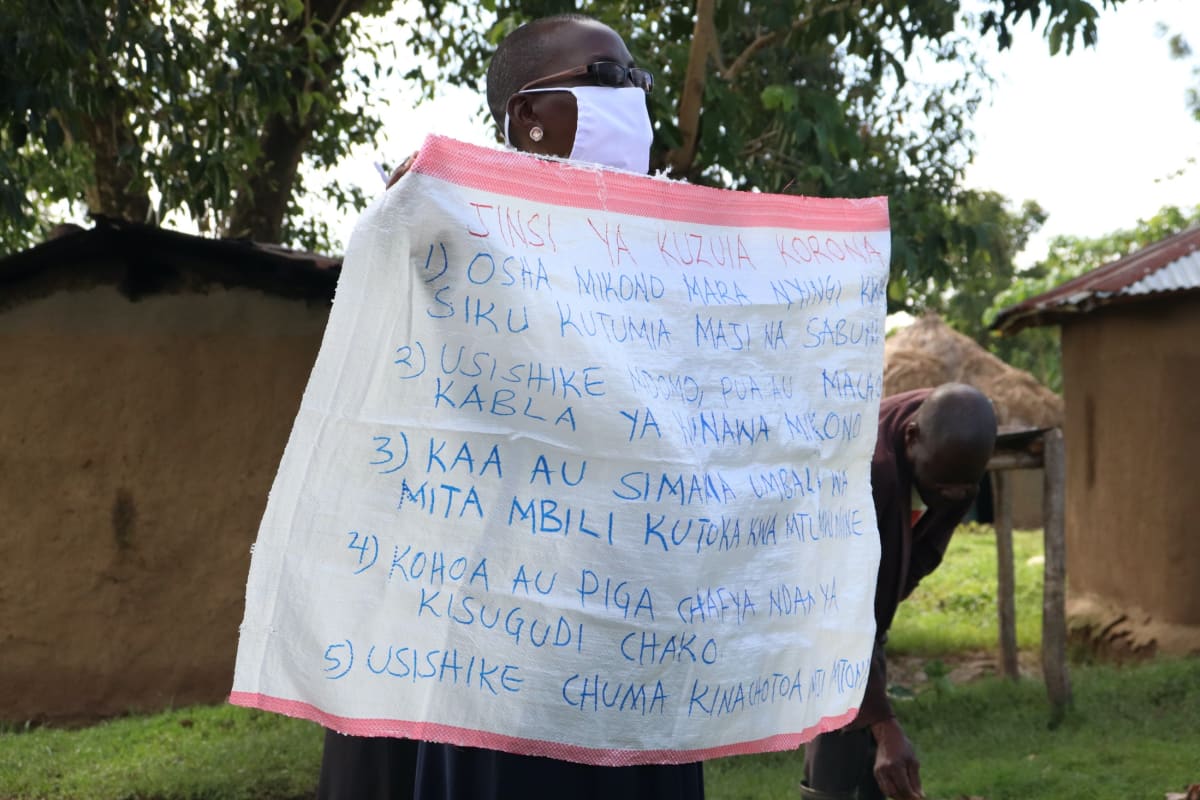 JINSI YA KUZUIA KORONA
1) OSHA MIKONO MARA NYINGI KWA
SIKU KUTUMIA MAJI NA SABUNI
2) USISHIKE NDOMO, PUA AU MACHO
KABLA YA KUNAWA MIKONO
3) KAA AU SIMAMA UMBALI WA
MITA MBILI KUTOKA KWA MTU MWINGINE
4) KOHOA AU PIGA CHAFYA NDANI YA
KISUGUDI CHAKO
5) USISHIKE CHUMA KINACHOTOA